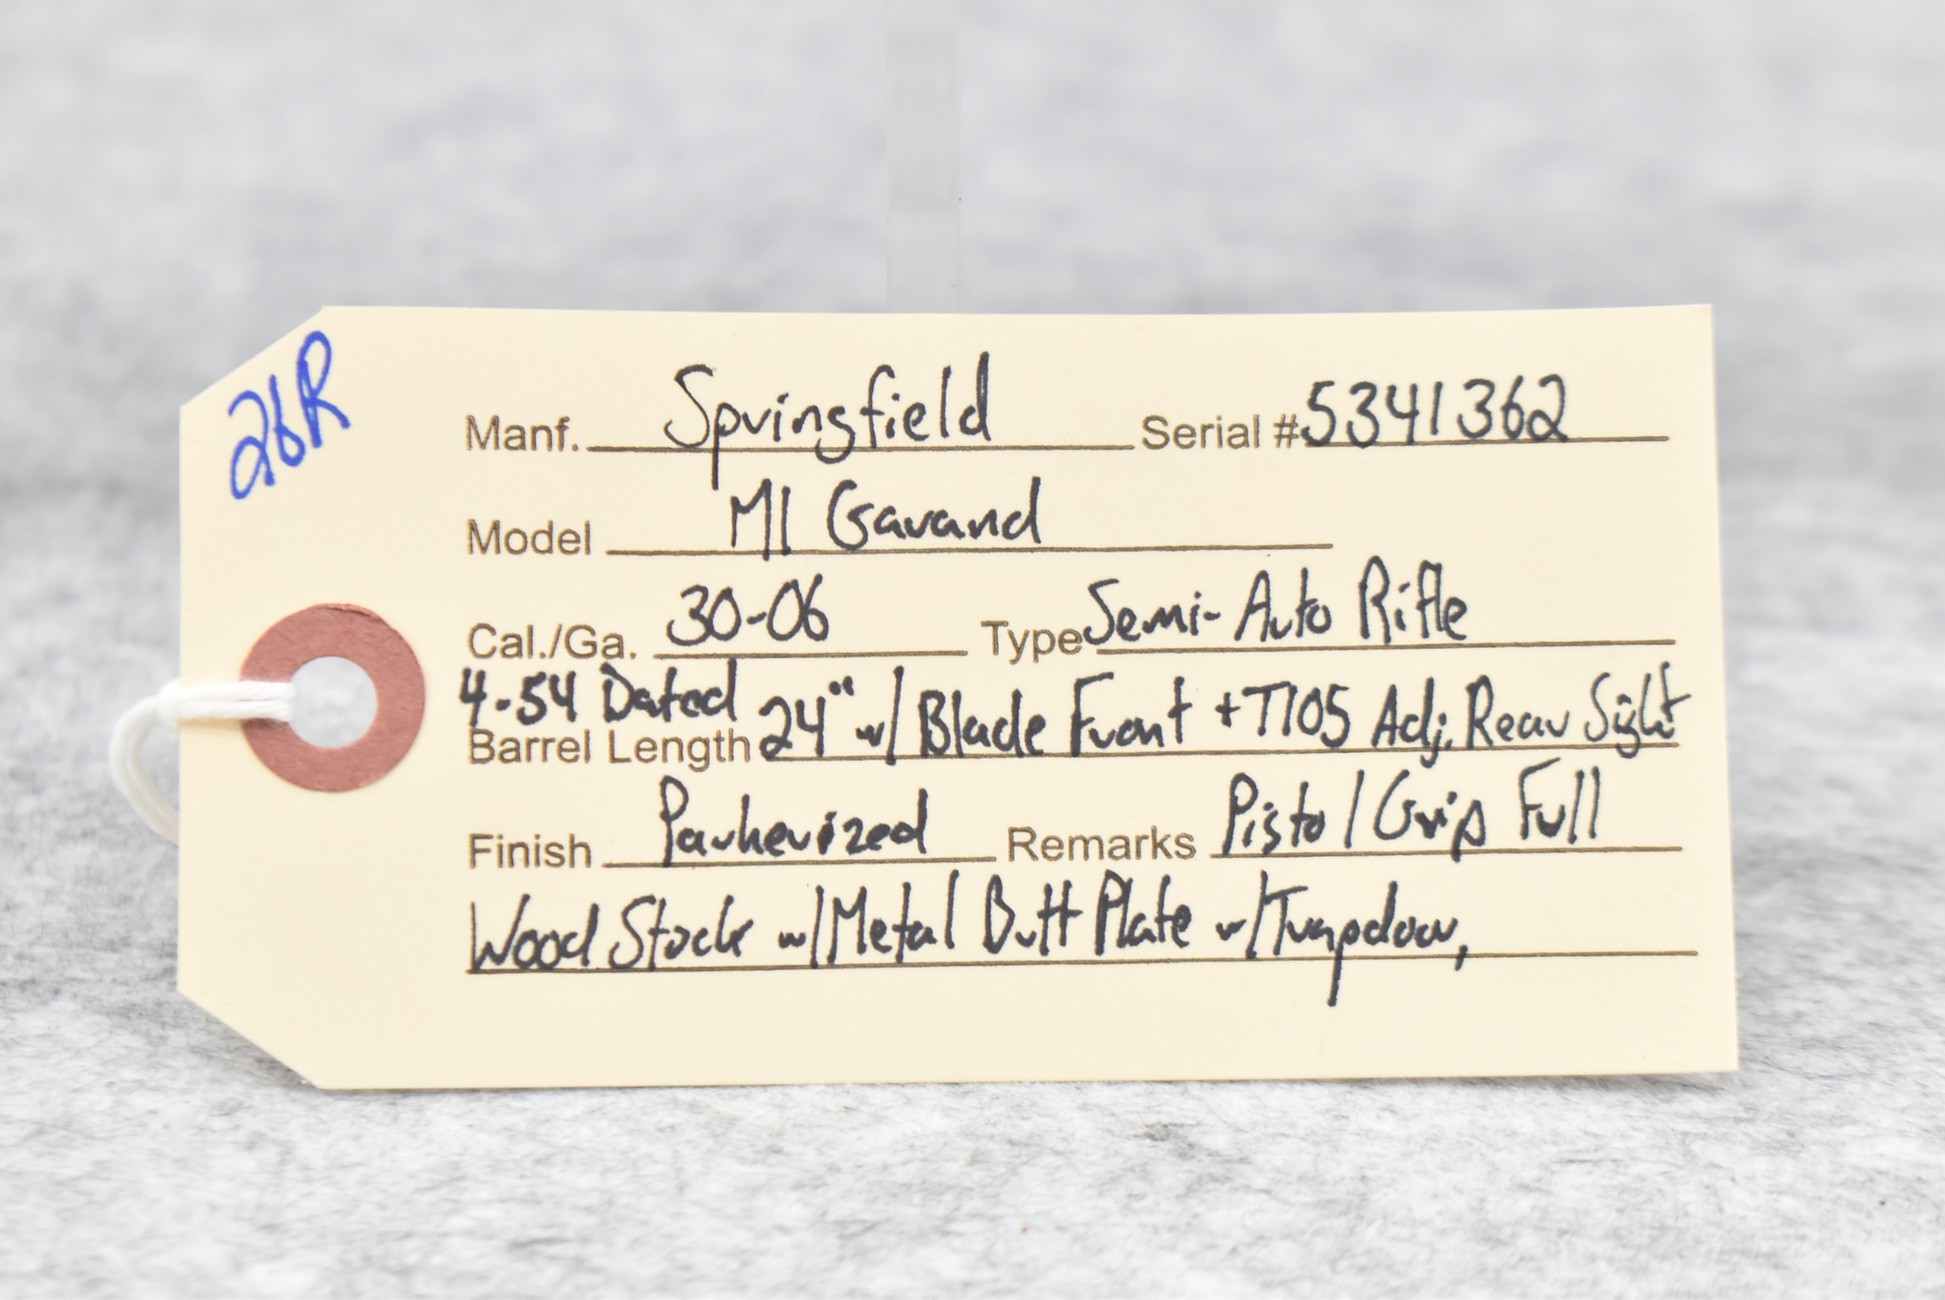 26R
Manf. Springfield Serial # 5341362
Model M1 Garand
Cal./Ga. 30-06 Type Semi-Auto Rifle
4-54 Dated
Barrel Length 24" w/ Blade Front + T105 Adj. Rear Sight
Finish Parkerized Remarks Pistol Grip Full
Wood Stock w/ Metal Butt Plate w/ Trapdoor,